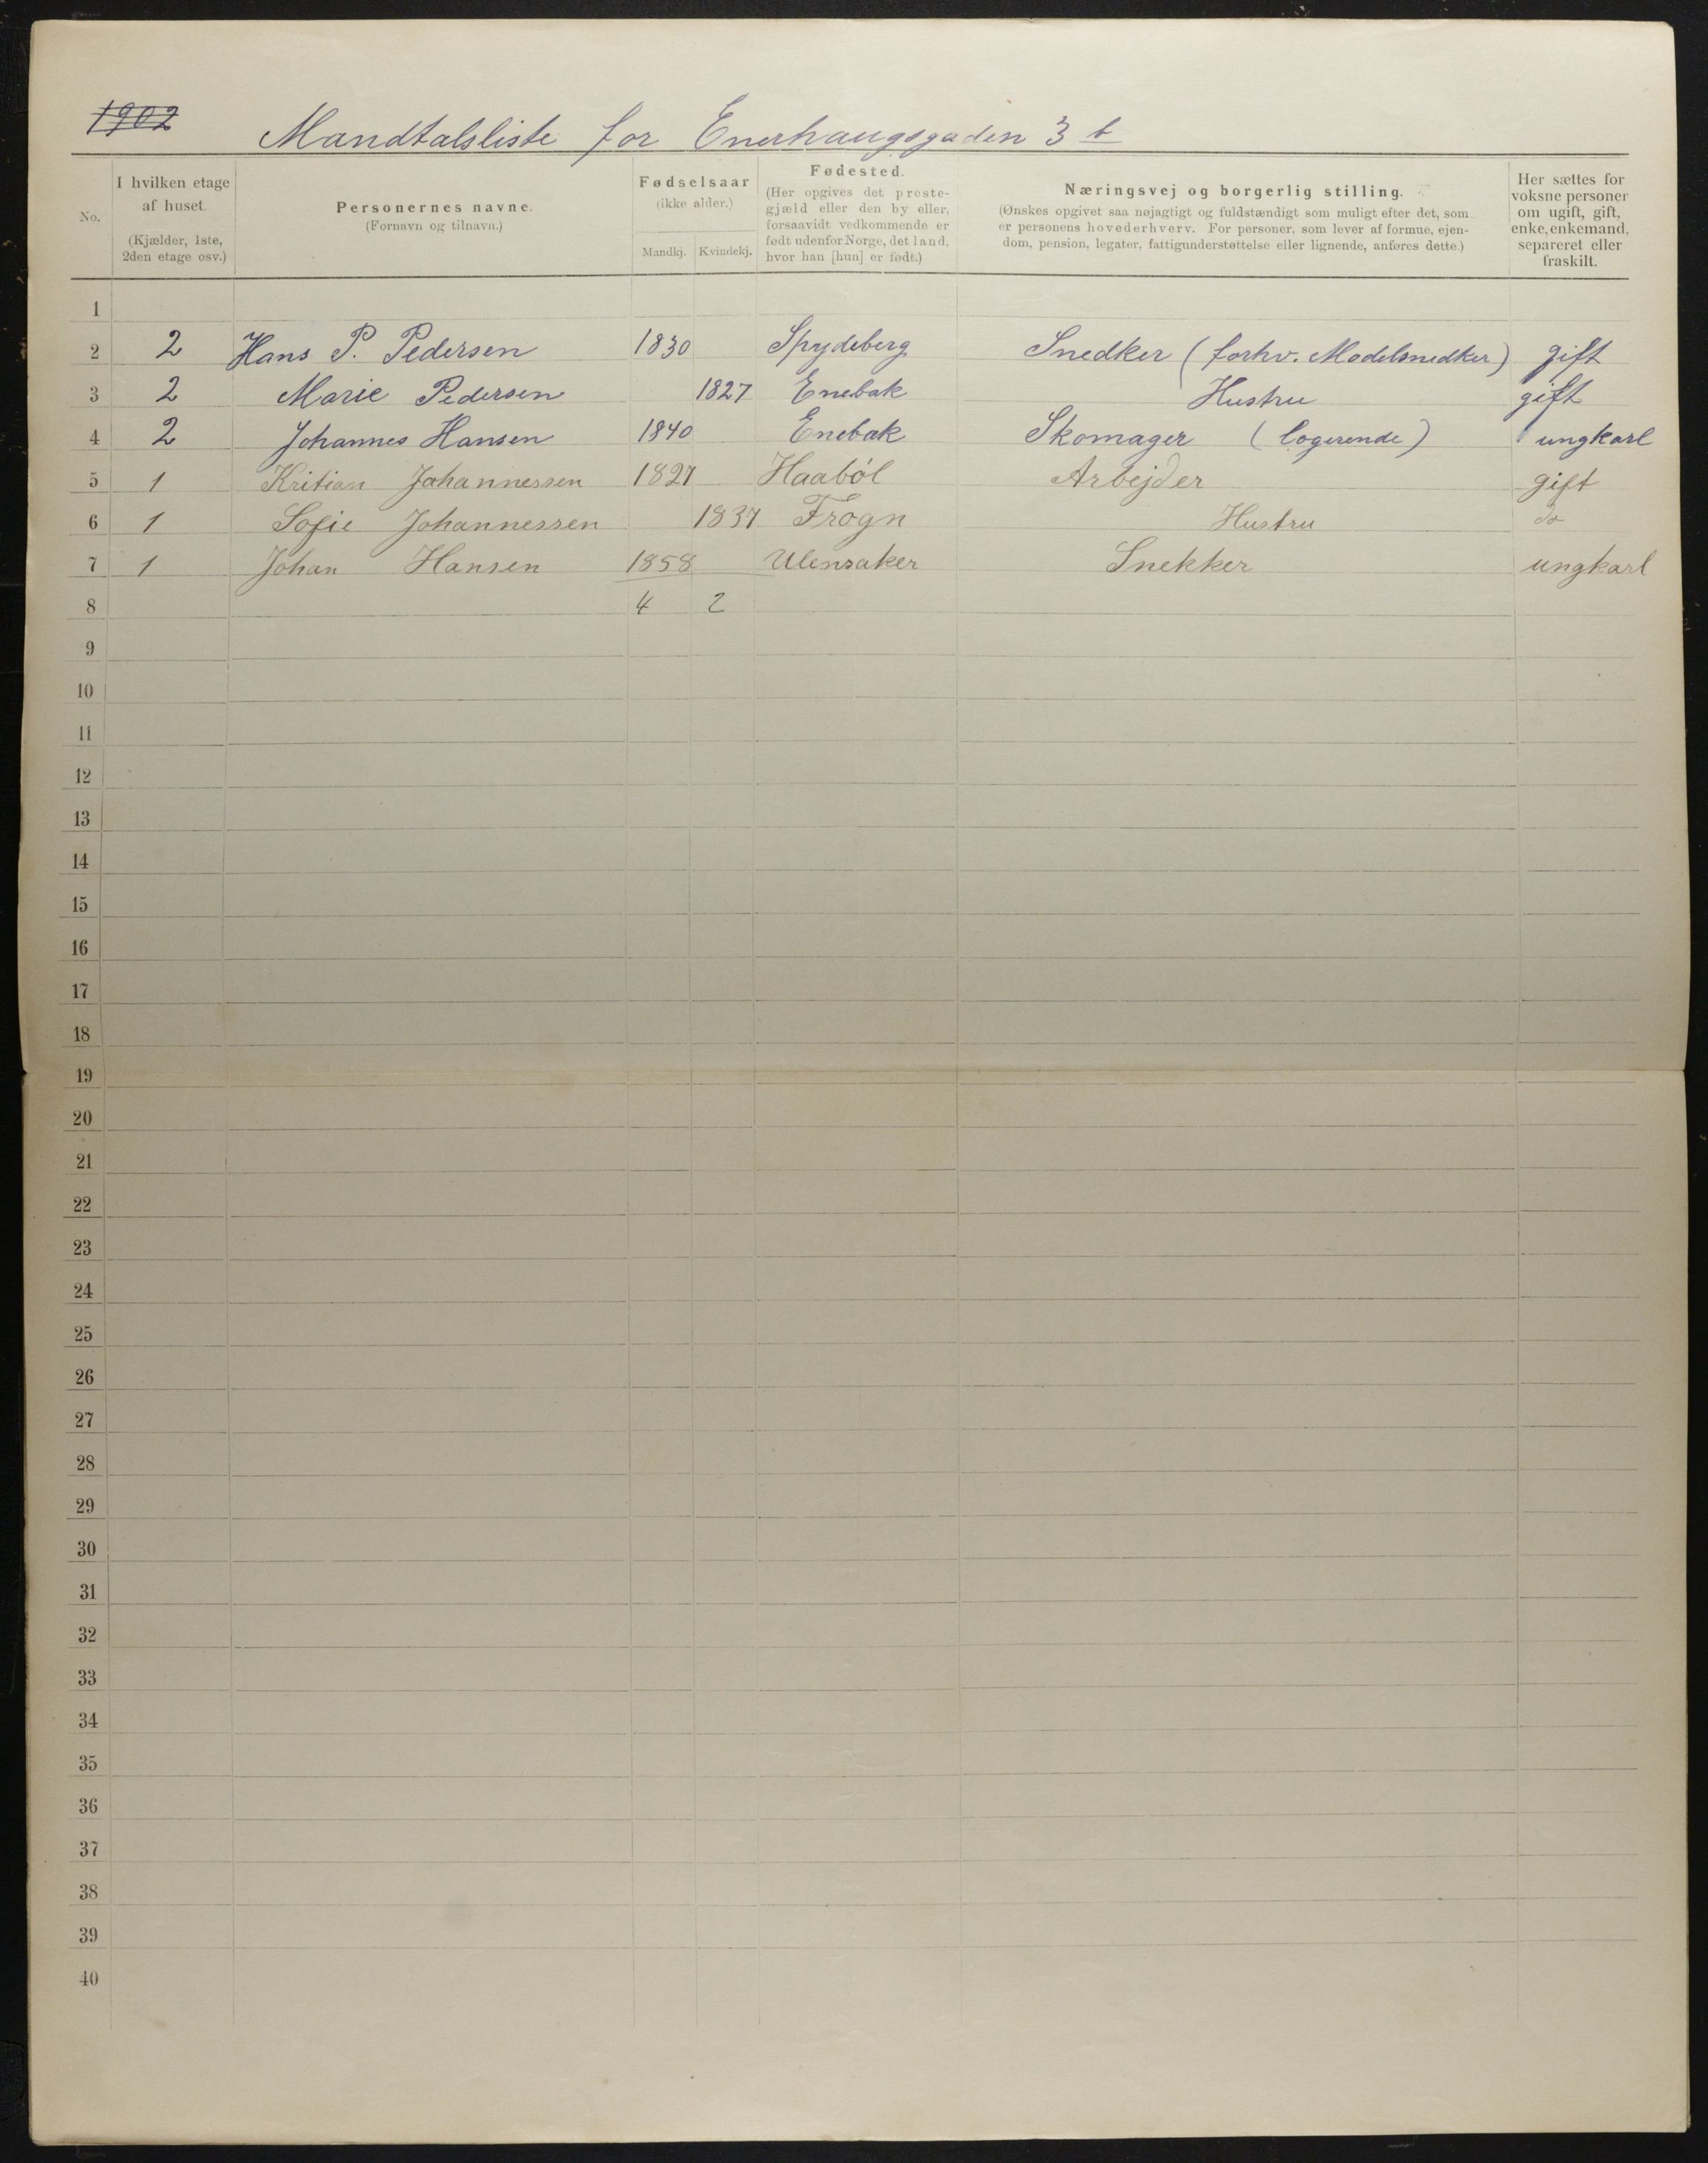 1902
Mandtalsliste for Enerhaugsgaden 3 b
No.
I hvilken etage
af huset.
(Kjælder, 1ste,
2den etage osv.)
Personernes navne.
(Fornavn og tilnavn.)
Fødselsaar
(ikke alder.)
Mandkj. Kvindekj.
Fødested.
(Her opgives det preste-
gjæld eller den by eller,
forsaavidt vedkommende er
født udenfor Norge, det land,
hvor han [hun] er født.)
Næringsvej og borgerlig stilling.
(Ønskes opgivet saa nøjagtigt og fuldstændigt som muligt efter det, som
er personens hovederhverv. For personer, som lever af formue, ejen-
dom, pension, legater, fattigunderstøttelse eller lignende, anføres dette.)
Her sættes for
voksne personer
om ugift, gift,
enke, enkemand,
separeret eller
fraskilt.
1
2 2 Hans P. Pedersen 1830 Spydeberg Snedker (forhv. Modelsnedker) gift
3 2 Marie Pedersen 1827 Enebak Hustru gift
4 2 Johannes Hansen 1840 Enebak Skomager (logerende) ungkarl
5 1 Kritian Johannessen 1827 Haabøl Arbejder gift
6 1 Sofie Johannessen 1837 Frogn Hustru do
7 1 Johan Hansen 1858 Ulensaker Snekker ungkarl
8 4 2
9
10
11
12
13
14
15
16
17
18
19
20
21
22
23
24
25
26
27
28
29
30
31
32
33
34
35
36
37
38
39
40